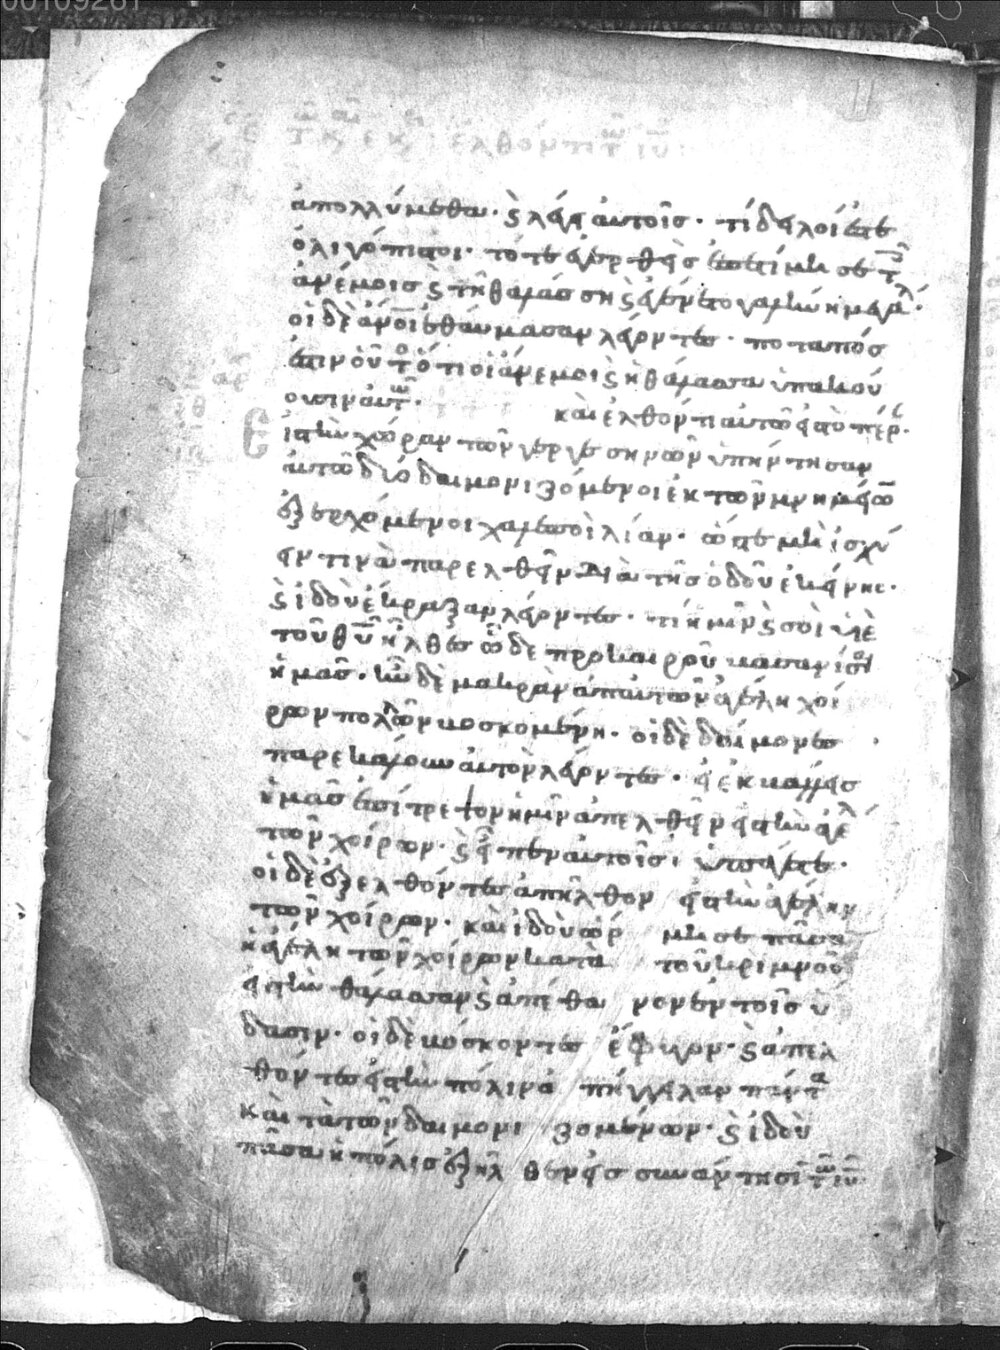 ἀπολλύμεθα· ϛ λέγει αὐτοῖσ· τί δειλοί ἐστε
ὀλιγόπιστοι· τότε ἐγερθεὶσ ἐπετίμησε τ
ἀνέμοισ ϛ τῆ θαλάσση ϛ ἐγένετο γαλήνη μεγάλ·
οἱ δὲ ἄνοι ἐθαύμασαν λέγοντεσ· ποταπόσ
ἐστιν οὗτο ὅτι οἱ ἄνεμοι ϛ ἡ θάλασσα ὑπακού
ουσιν αὐτῶ· καὶ ἐλθόντι αὐτῶ εἰσ τὸ πέρ·
εἰσ τὴν χώραν τῶν γεργεσηνῶν ὑπήντησαν
αὐτῶ δύο δαιμονιζόμενοι ἐκ τῶν μνημείω
ἐξερχόμενοι χαλεποὶ λίαν· ὥστε μὴ ἰσχύ
ειν τινὰ παρελθεῖν διὰ τῆσ ὁδοῦ ἐκείνησ·
ϛ ἰδοὺ ἔκραξαν λέγοντεσ· τί ἡμῖν ϛ σοὶ υἱὲ
τοῦ θυ ἦλθεσ ὧδε πρὸ καιροῦ βασανίσαι
ἡμᾶσ· ἦν δὲ μακρὰν ἀπ αὐτῶν ἀγέλη χοί
ρων πολλῶν βοσκομένη· οἱ δὲ δαίμονεσ
παρεκάλουν αὐτὸν λέγοντεσ· εἰ ἐκβάλλεισ
ἡμᾶσ ἐπίτρεψον ἡμῖν ἀπελθεῖν εἰσ τὴν ἀγέλ
τῶν χοίρων· ϛ εἶπεν αὐτοῖσ ὑπάγετε·
οἱ δὲ ἐξελθόντεσ ἀπῆλθον εἰσ τὴν ἀγέλην
τῶν χοίρων· καὶ ἰδοὺ ὥρμησε πᾶσα
ἡ ἀγέλη τῶν χοίρων κατὰ τοῦ κριμνοῦ
εἰσ τὴν θάλασσαν ϛ ἀπέθανον ἐν τοῖσ ὕ
δασιν· οἱ δὲ βόσκοντεσ ἔφυγον· ϛ ἀπελ
θόντεσ εἰσ τὴν πόλιν ἀπήγγειλαν πάντα
καὶ τὰ τῶν δαιμονιζομένων· ϛ ἰδοὺ
πᾶσα ἡ πόλισ ἐξῆλθεν εἰσ συνάντησι τῶ ιυ